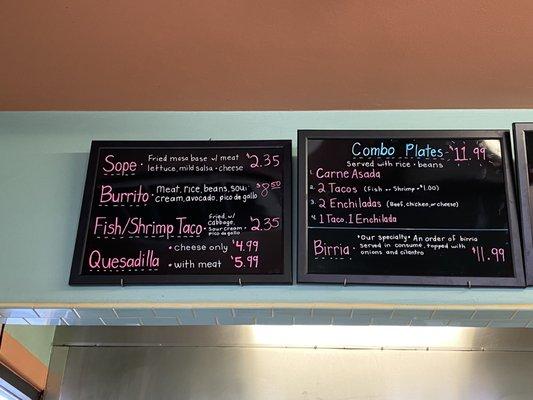 Sope - Fried masa base w/ meat $2.35
lettuce, mild salsa - cheese
Burrito - Meat, rice, beans, sour $8.50
cream, avocado, pico de gallo
Fish/Shrimp Taco - Fried, w/ $2.35
Cabbage,
Sour cream
pico de gallo
Quesadilla • cheese only $4.99
• with meat $5.99
Combo Plates - $11.99
Served with rice - beans
1. Carne Asada
2. 2 Tacos (Fish or Shrimp + $1.00)
3. 2 Enchiladas (Beef, chicken, or cheese)
4. 1 Taco, 1 Enchilada
Birria * Our specialty * An order of birria
served in consume, topped with
onions and cilantro $11.99